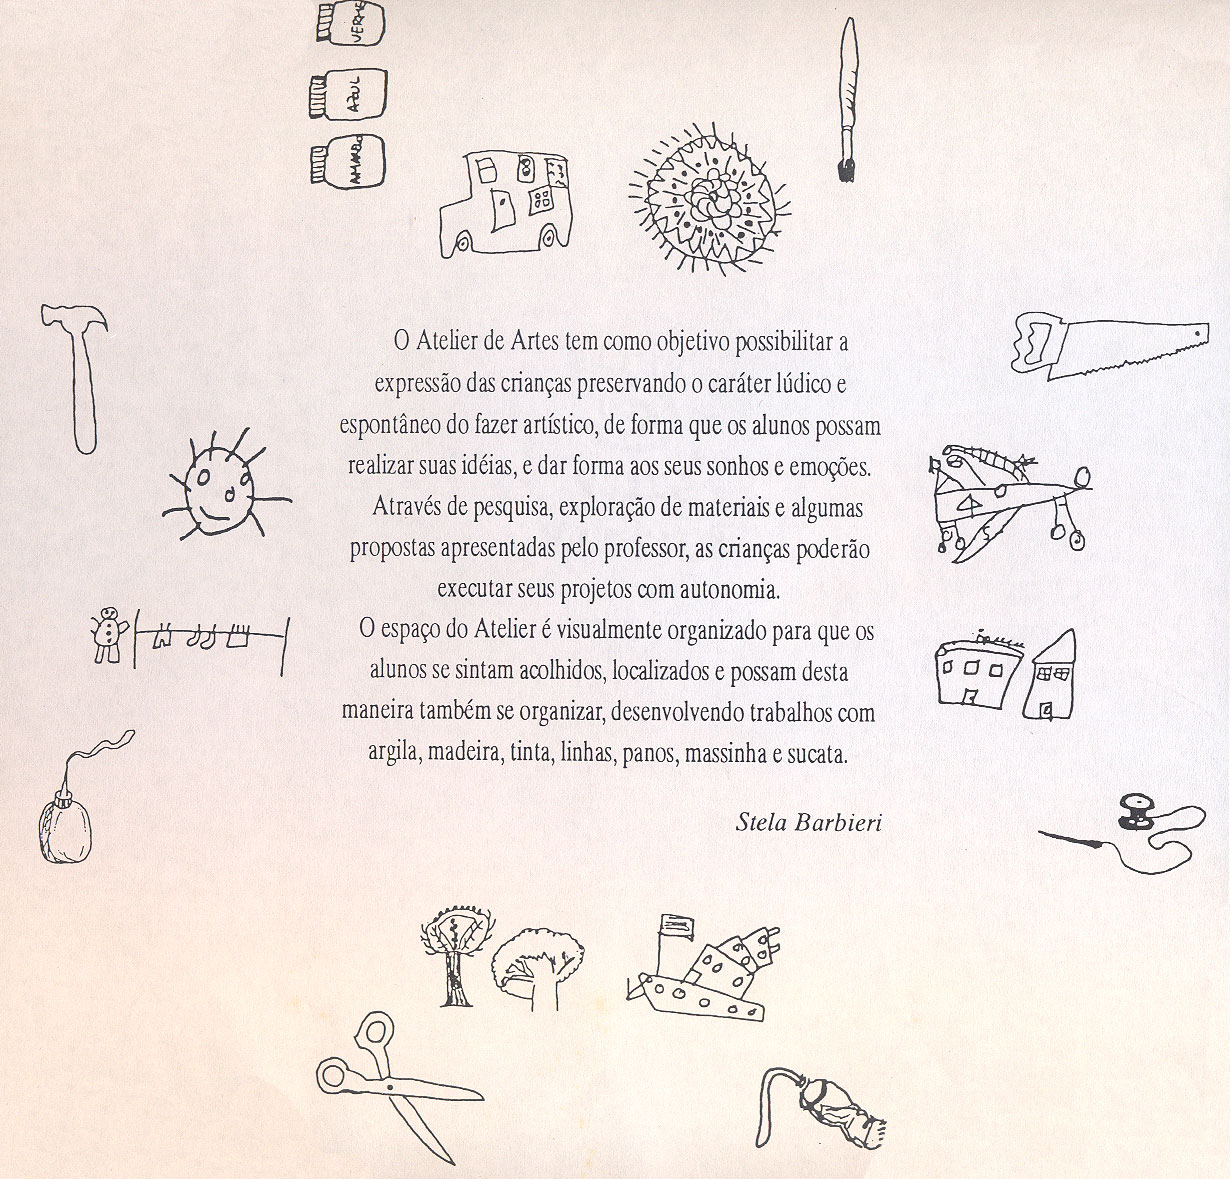 VERME
AZUL
AMARELO
O Atelier de Artes tem como objetivo possibilitar a
expressão das crianças preservando o caráter lúdico e
espontâneo do fazer artístico, de forma que os alunos possam
realizar suas idéias, e dar forma aos seus sonhos e emoções.
Através de pesquisa, exploração de materiais e algumas
propostas apresentadas pelo professor, as crianças poderão
executar seus projetos com autonomia.
O espaço do Atelier é visualmente organizado para que os
alunos se sintam acolhidos, localizados e possam desta
maneira também se organizar, desenvolvendo trabalhos com
argila, madeira, tinta, linhas, panos, massinha e sucata.
Stela Barbieri